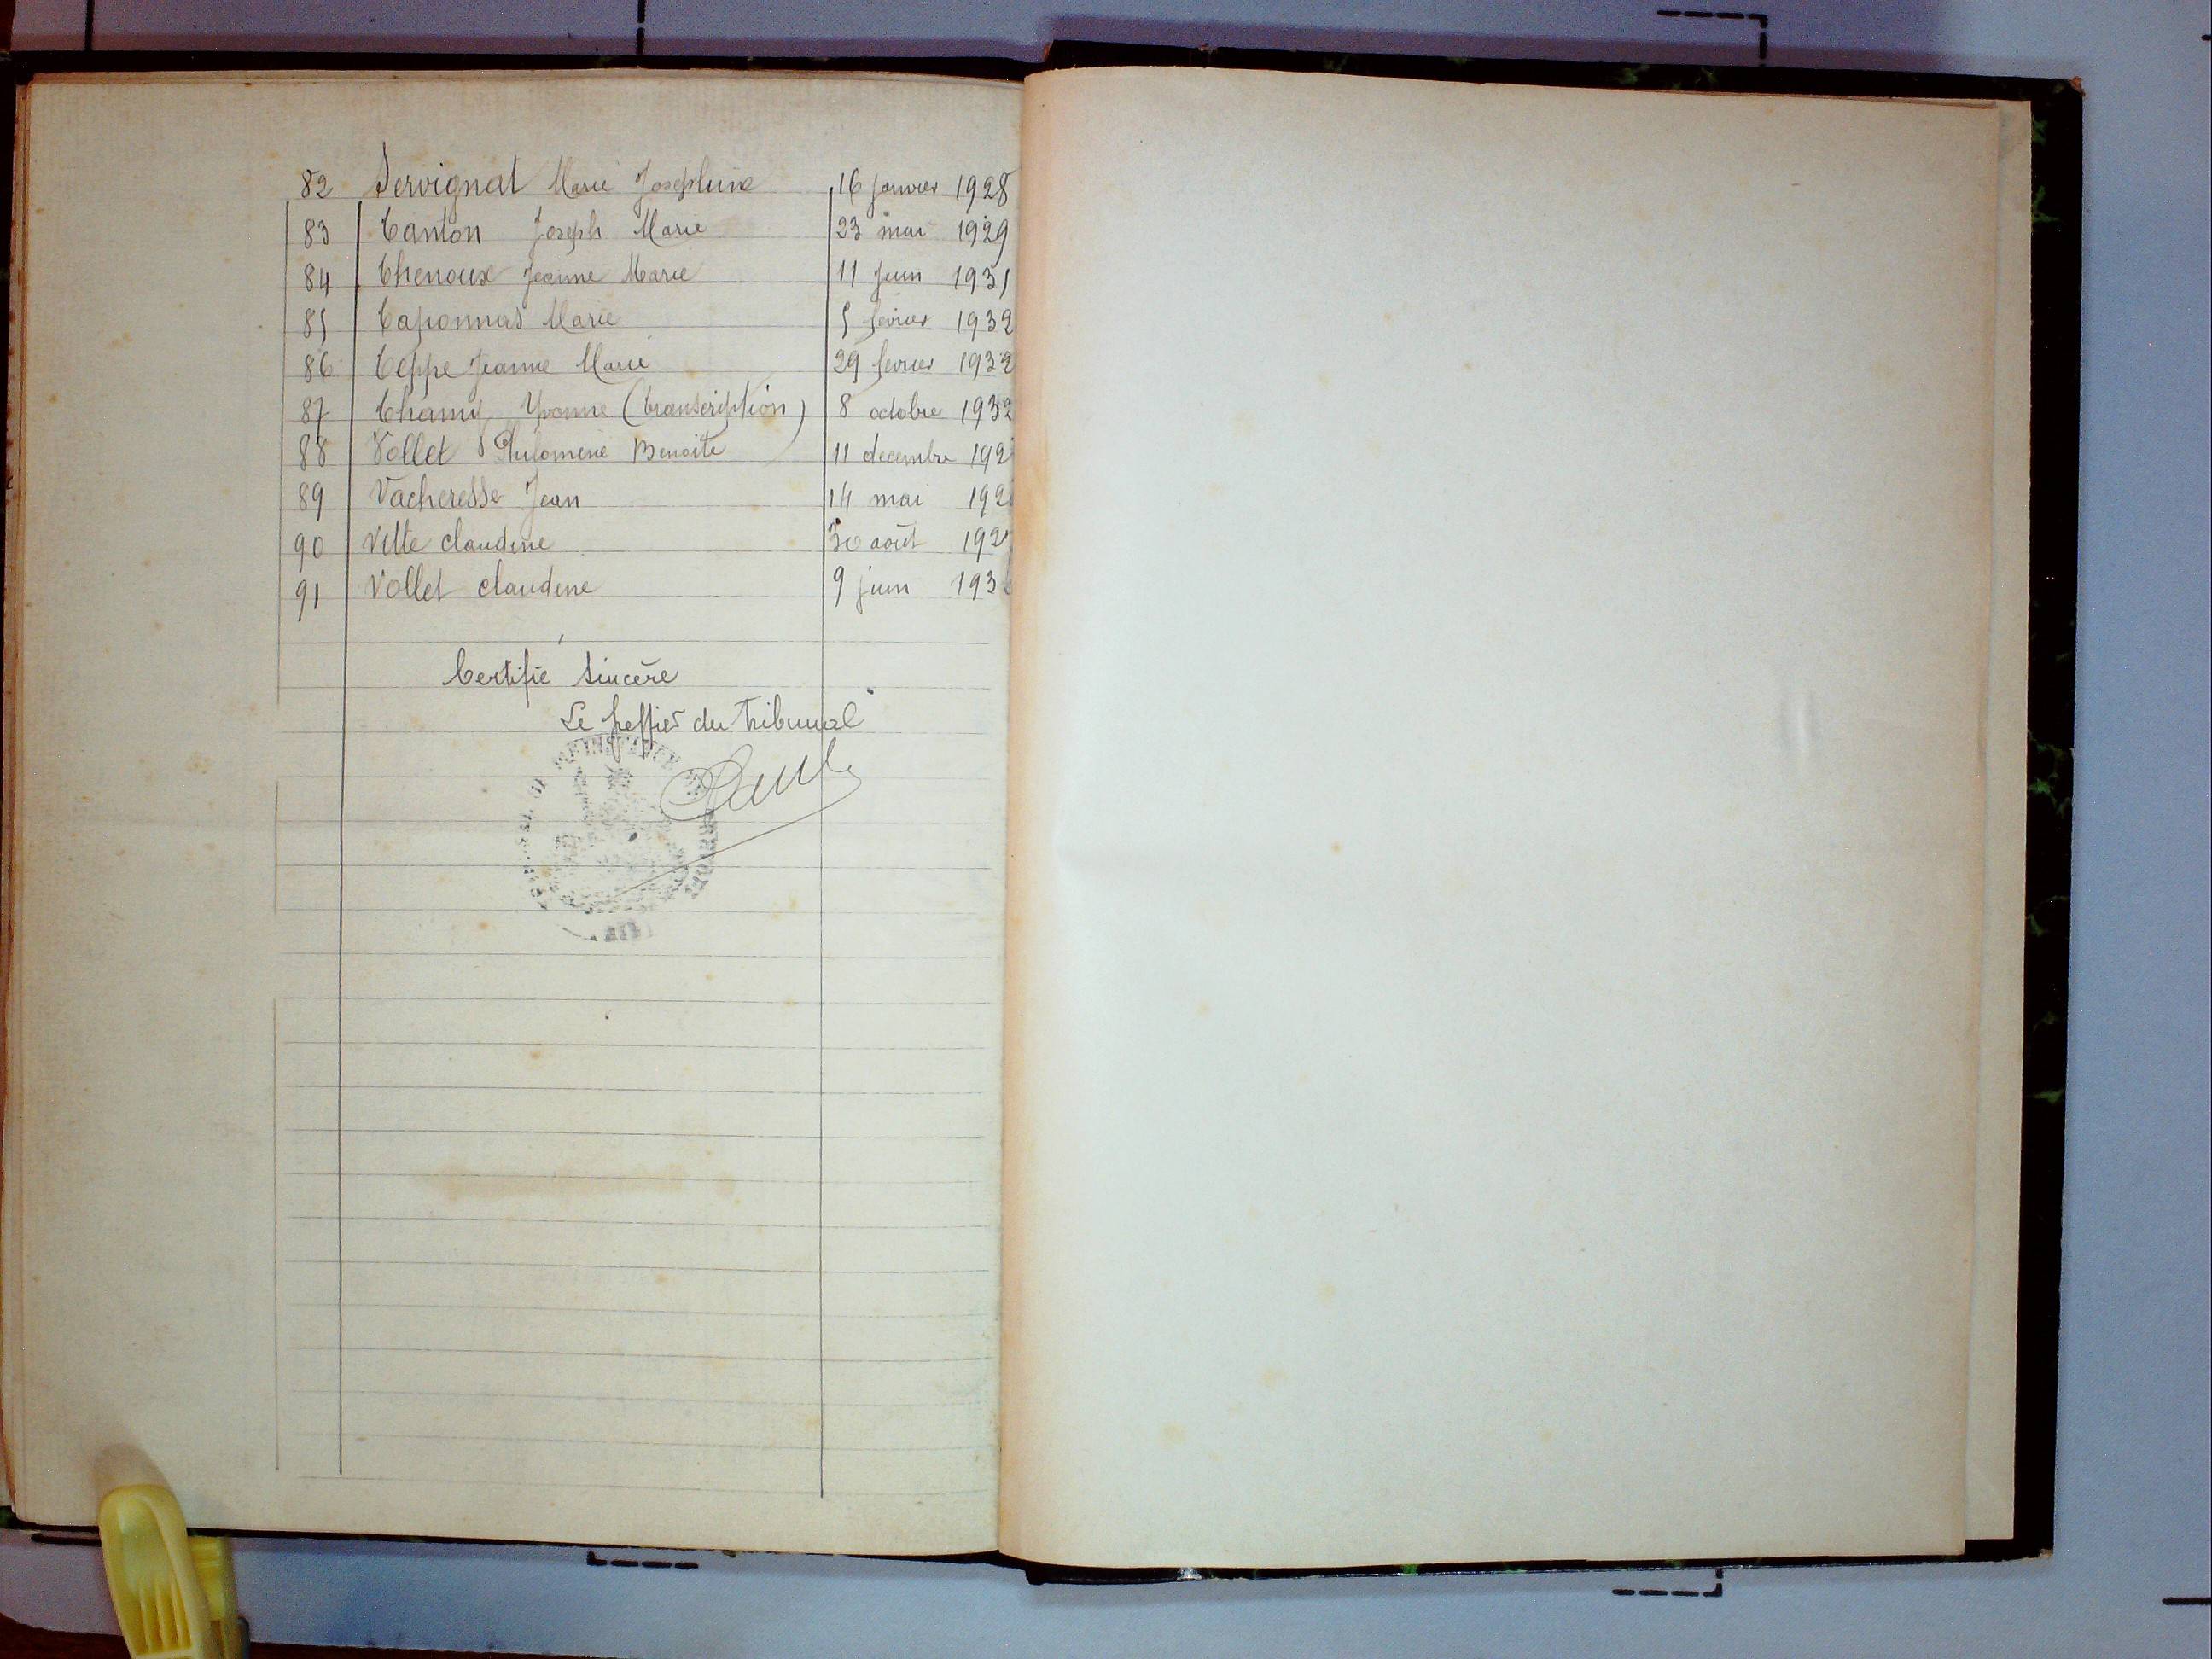 82 Servignat Marie Josephine 16 janvier 1928
83 Tanton Joseph Marie 23 mai 1929
84 Thenoux Jeanne Marie 11 juin 1931
85 Taponnas Marie 5 fevrier 1932
86 Teppe Jeanne Marie 29 fevrier 1932
87 Yvonne (transcription) 8 octobre 1932
88 Vollet Philomene Benoite 11 decembre
89 Vacheresse Jean 14 mai
90 Vitte claudine 30 août
91 Vollet claudine 9 juin
Certifié sincère
Le greffier du Tribunal